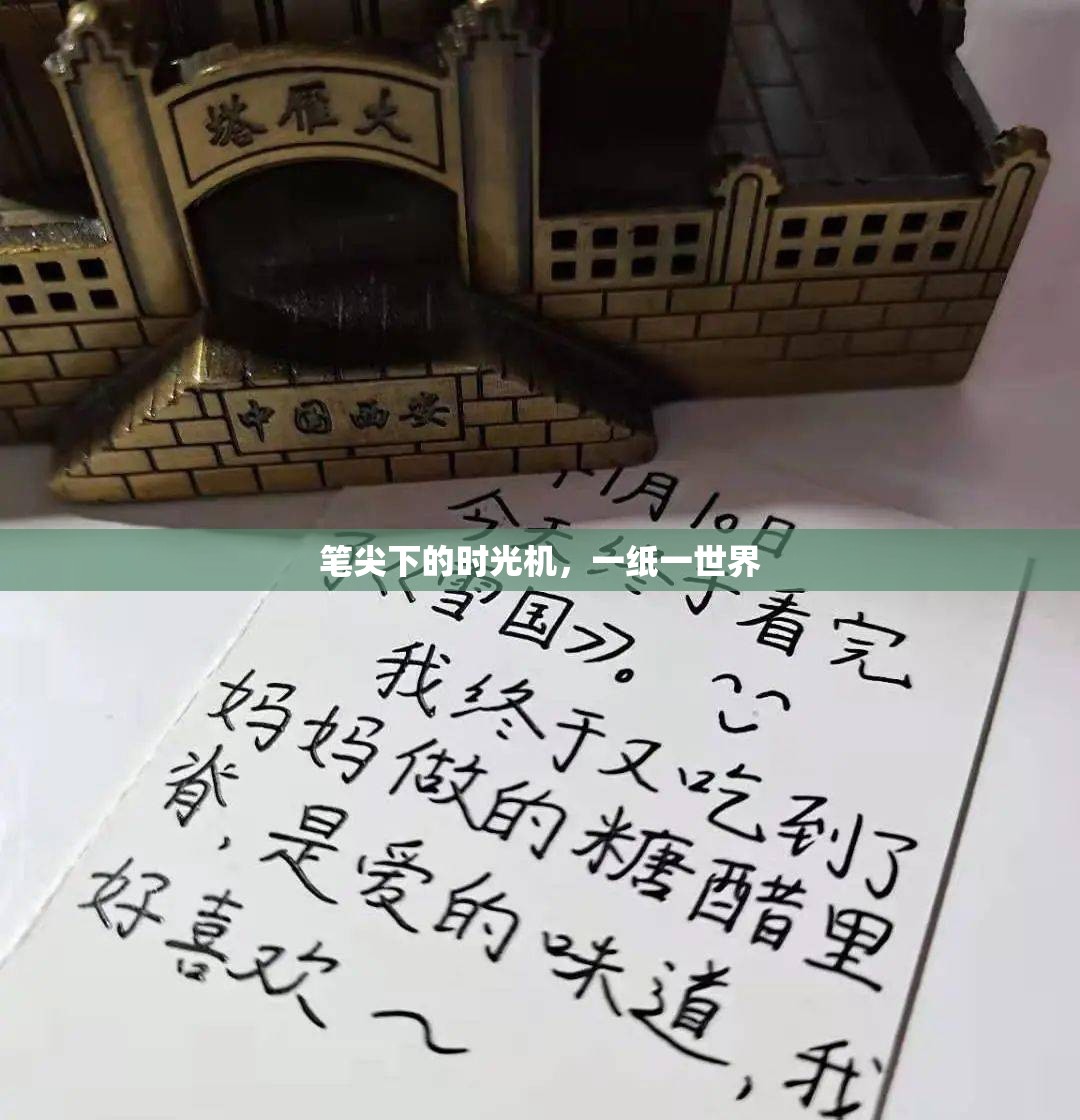 大雁塔
中国西安
月10日
今天终于看完
笔尖下的时光机，一纸一世界
了《雪国》。
我终于又吃到了
妈妈做的糖醋里
脊，是爱的味道，我
好喜欢～